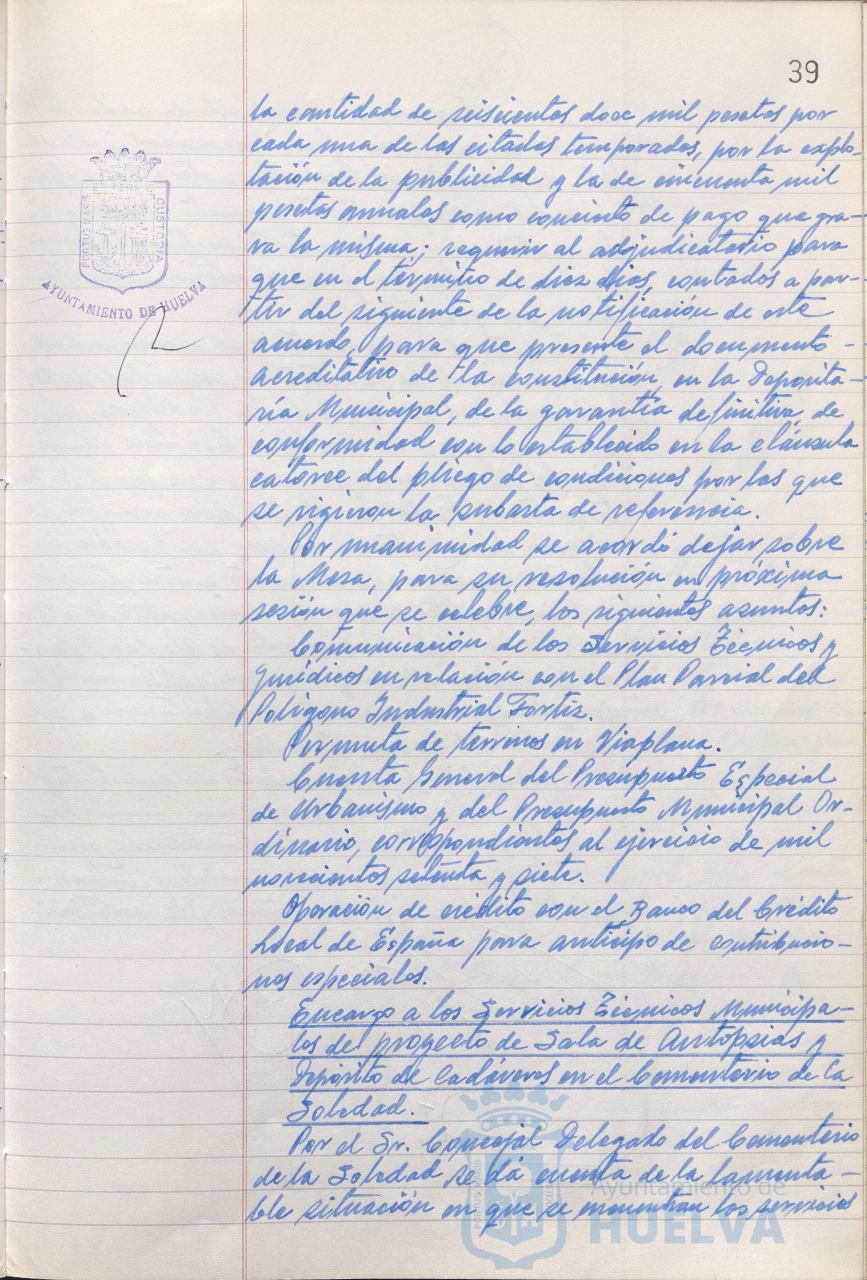 39
la cantidad de seiscientas doce mil pesetas por
cada una de las citadas temporadas, por la explo-
tación de la publicidad y la de cincuenta mil
pesetas anuales como concierto de pago que gra-
va la misma; requerir al adjudicatario para
que en el término de diez días, contados a par-
tir del siguiente de la notificación de este
acuerdo, para que presente el documento
acreditativo de la constitución, en la Deposita-
ría Municipal, de la garantía definitiva, de
conformidad con lo establecido en la cláusula
catorce del pliego de condiciones por las que
se rigieron la subasta de referencia.
Por unanimidad se acordó dejar sobre
la Mesa, para su resolución en próxima
sesión que se celebre, los siguientes asuntos:
Comunicación de los Servicios Técnicos y
Jurídicos en relación con el Plan Parcial del
Polígono Industrial Fortiz.
Permuta de terrenos en Viaplana.
Cuenta General del Presupuesto Especial
de Urbanismo y del Presupuesto Municipal Or-
dinario, correspondientes al ejercicio de mil
novecientos setenta y siete.
Operación de crédito con el Banco del Crédito
Local de España para anticipo de contribucio-
nes especiales.
Encargo a los Servicios Técnicos Municipa-
les de proyecto de Sala de Autopsias y
Depósito de Cadáveres en el Cementerio de la
Soledad.
Por el Sr. Concejal Delegado del Cementerio
de la Soledad se dá cuenta de la lamenta-
ble situación en que se encuentran los servicios
PORTUS MARIS
CUSTODIA
AYUNTAMIENTO DE HUELVA
Ayuntamiento de
HUELVA